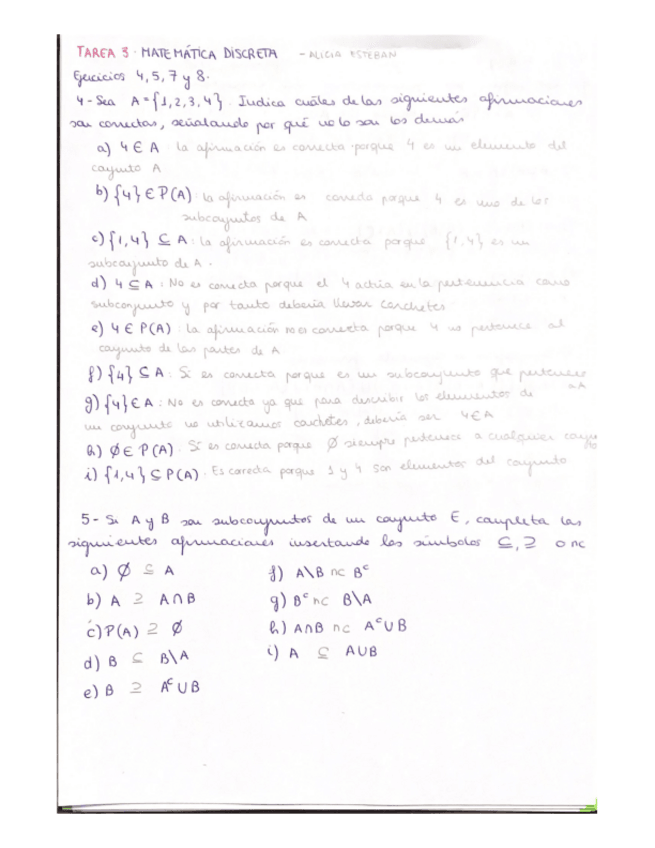 TAREA 3 · MATEMÁTICA DISCRETA - ALICIA ESTEBAN
Ejercicios 4, 5, 7 y 8.
4- Sea A = {1,2,3,4}. Indica cuáles de las siguientes afirmaciones
son correctas, señalando por qué no lo son las demás
a) 4 ∈ A : la afirmación es correcta porque 4 es un elemento del
conjunto A
b) {4} ∈ P(A) : la afirmación es correcta porque 4 es uno de los
subconjuntos de A
c) {1,4} ⊆ A : la afirmación es correcta porque {1,4} es un
subconjunto de A.
d) 4 ⊆ A : No es correcta porque el 4 actúa en la pertenencia como
subconjunto y por tanto debería llevar corchetes
e) 4 ∈ P(A) : la afirmación no es correcta porque 4 no pertenece al
conjunto de las partes de A
f) {4} ⊆ A : Sí es correcta porque es un subconjunto que pertenece
a A
g) {4} ∈ A : No es correcto ya que para describir los elementos de
un conjunto no utilizamos corchetes, debería ser 4 ∈ A
h) ∅ ∈ P(A) : Sí es correcta porque ∅ siempre pertenece a cualquier
i) {1,4} ⊆ P(A) : Es correcta porque 1 y 4 son elementos del conjunto
5- Si A y B son subconjuntos de un conjunto E, completa las
siguientes afirmaciones insertando los símbolos ⊆, ⊇ o nc
a) ∅ ⊆ A
b) A ⊇ A∩B
c) P(A) ⊇ ∅
d) B ⊆ B\A
e) B ⊇ Aᶜ∪B
f) A\B nc Bᶜ
g) Bᶜ nc B\A
h) A∩B nc Aᶜ∪B
i) A ⊆ A∪B